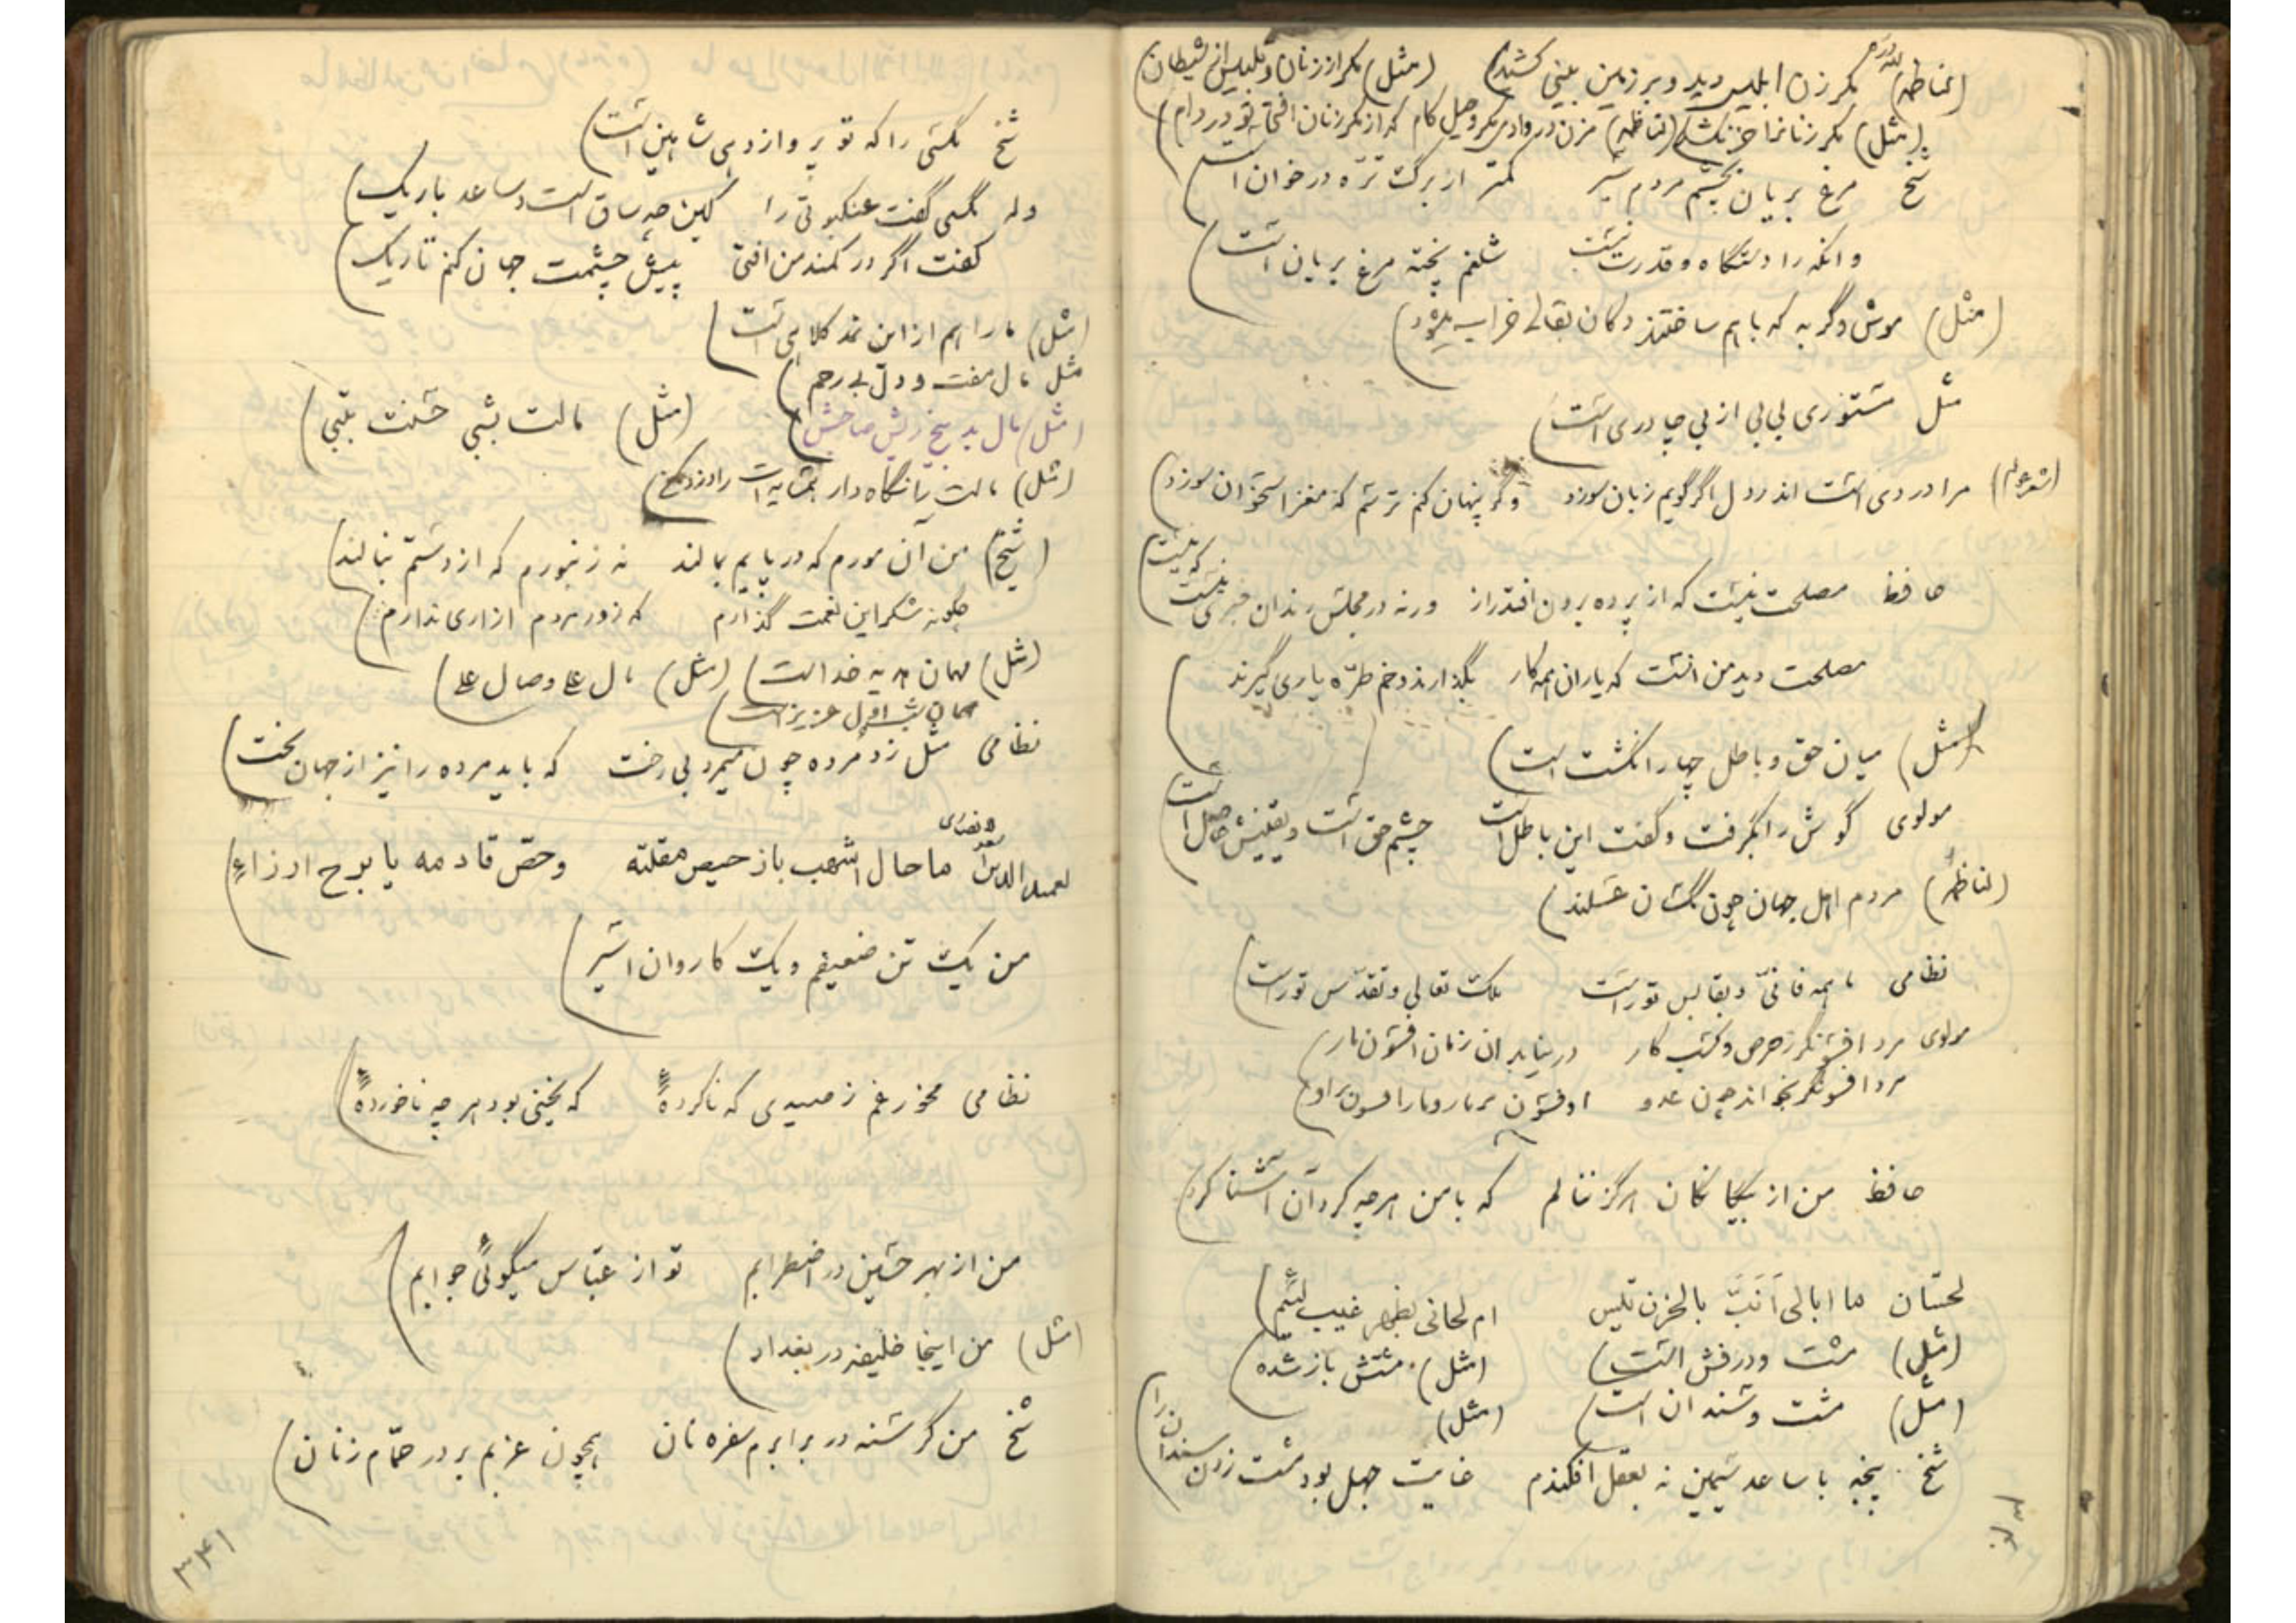 (لناظمه) لله دره مکر زن ابلیس دید و بر زمین بینی کشید) (مثل) مکر از زنان و تلبیس از شیطان)
(مثل) مکر زنانرا خر نکشد) (لناظمه) مزن در وادی مکر و حیل گام که از مکر زنان افتی تو در دام)
شخ مرغ بریان بچشم مردم سیر کمتر از برگ ترّه در خوان است
وانکه را دستگاه و قدرت نیست شلغم پخته مرغ بریان است)
(مثل) موش و گربه که با هم ساختند دکان بقالی خراب میشود)
مثل مستوری بی بی از بی چادری است)
مرا دردی است اندر دل اگر گویم زبان سوزد وگر پنهان کنم ترسم که مغز استخوان سوزد)
حافظ مصلحت نیست که از پرده برون افتد راز ورنه در مجلس رندان خبری نیست که نیست)
مصلحت دید من انست که یاران همه کار بگذارند و خم طرّه یاری گیرند
(مثل) میان حق و باطل چهار انگشت است)
مولوی گوش را بگرفت و گفت این باطل است چشم حق است و یقینش حاصل است
(لناظمه) مردم اهل جهان چون مگسان عسلند)
نظامی ما همه فانیّ و بقا بس تو راست ملک تعالی و تقدّس تو راست)
مولوی مرد افسونگر ز حرص و کسب کار در نیابد ان زمان افسون مار)
مرد افسونگر بخواند چون عدو او فسون بر مار و مار افسون بر او)
حافظ من از بیگانگان هرگز ننالم که با من هرچه کرد آن آشنا کرد)
لحسّان ما ابالی اَنَبَّ بالحزن تیس ام لحانی بظهر غیب لئیم)
(مثل) مشت و درفش است) (مثل) مشتش باز شده)
(مثل) مشت و سندان است) (مثل)
شخ پنجه با ساعد سیمین نه بعقل افکندم غایت جهل بود مشت زدن سندان را)
شخ مگسی را که تو پرواز دهی شاهین است)
وله مگسی گفت عنکبوتی را کین چه ساق است و ساعد باریک)
گفت اگر در کمند من افتی پیش چشمت جهان کنم تاریک)
(مثل) ما را هم از این نمد کلاهی است)
مثل مال مفت و دل بی رحم)
(مثل) مال بد بیخ ریش صاحبش) (مثل) مالت بشی حسنت بتبی)
(مثل) مالت را نگاه دار همسایه ات را دزد مکن)
(شیخ) من آن مورم که در پایم بمالند نه زنبورم که از دستم بنالند)
چگونه شکر این نعمت گذارم که زور مردم ازاری ندارم)
(مثل) مهمان هدیه خداست) (مثل) مال علی و صال علی)
مهمان شب اول عزیز است)
نظامی مثل زد مرده چون میمرد بی رخت که باید مرده را نیز از جهان بخت)
لعمید الدین اسعد ما حال اشهب باز حیص مقلته وحصّ قادمه یا برح ارزاء)
من یک تن ضعیفم و یک کاروان اسیر)
نظامی مخور غم ز صیدی که ناکردهٔ که یخنی بود هرچه ناخوردهٔ)
من از بهر حسین در اضطرابم تو از عبّاس میگوئی جوابم)
(مثل) من اینجا خلیفه در بغداد)
شخ من گرسنه در برابرم سفره نان همچون عزبم بر در حمّام زنان)
۳۴۱